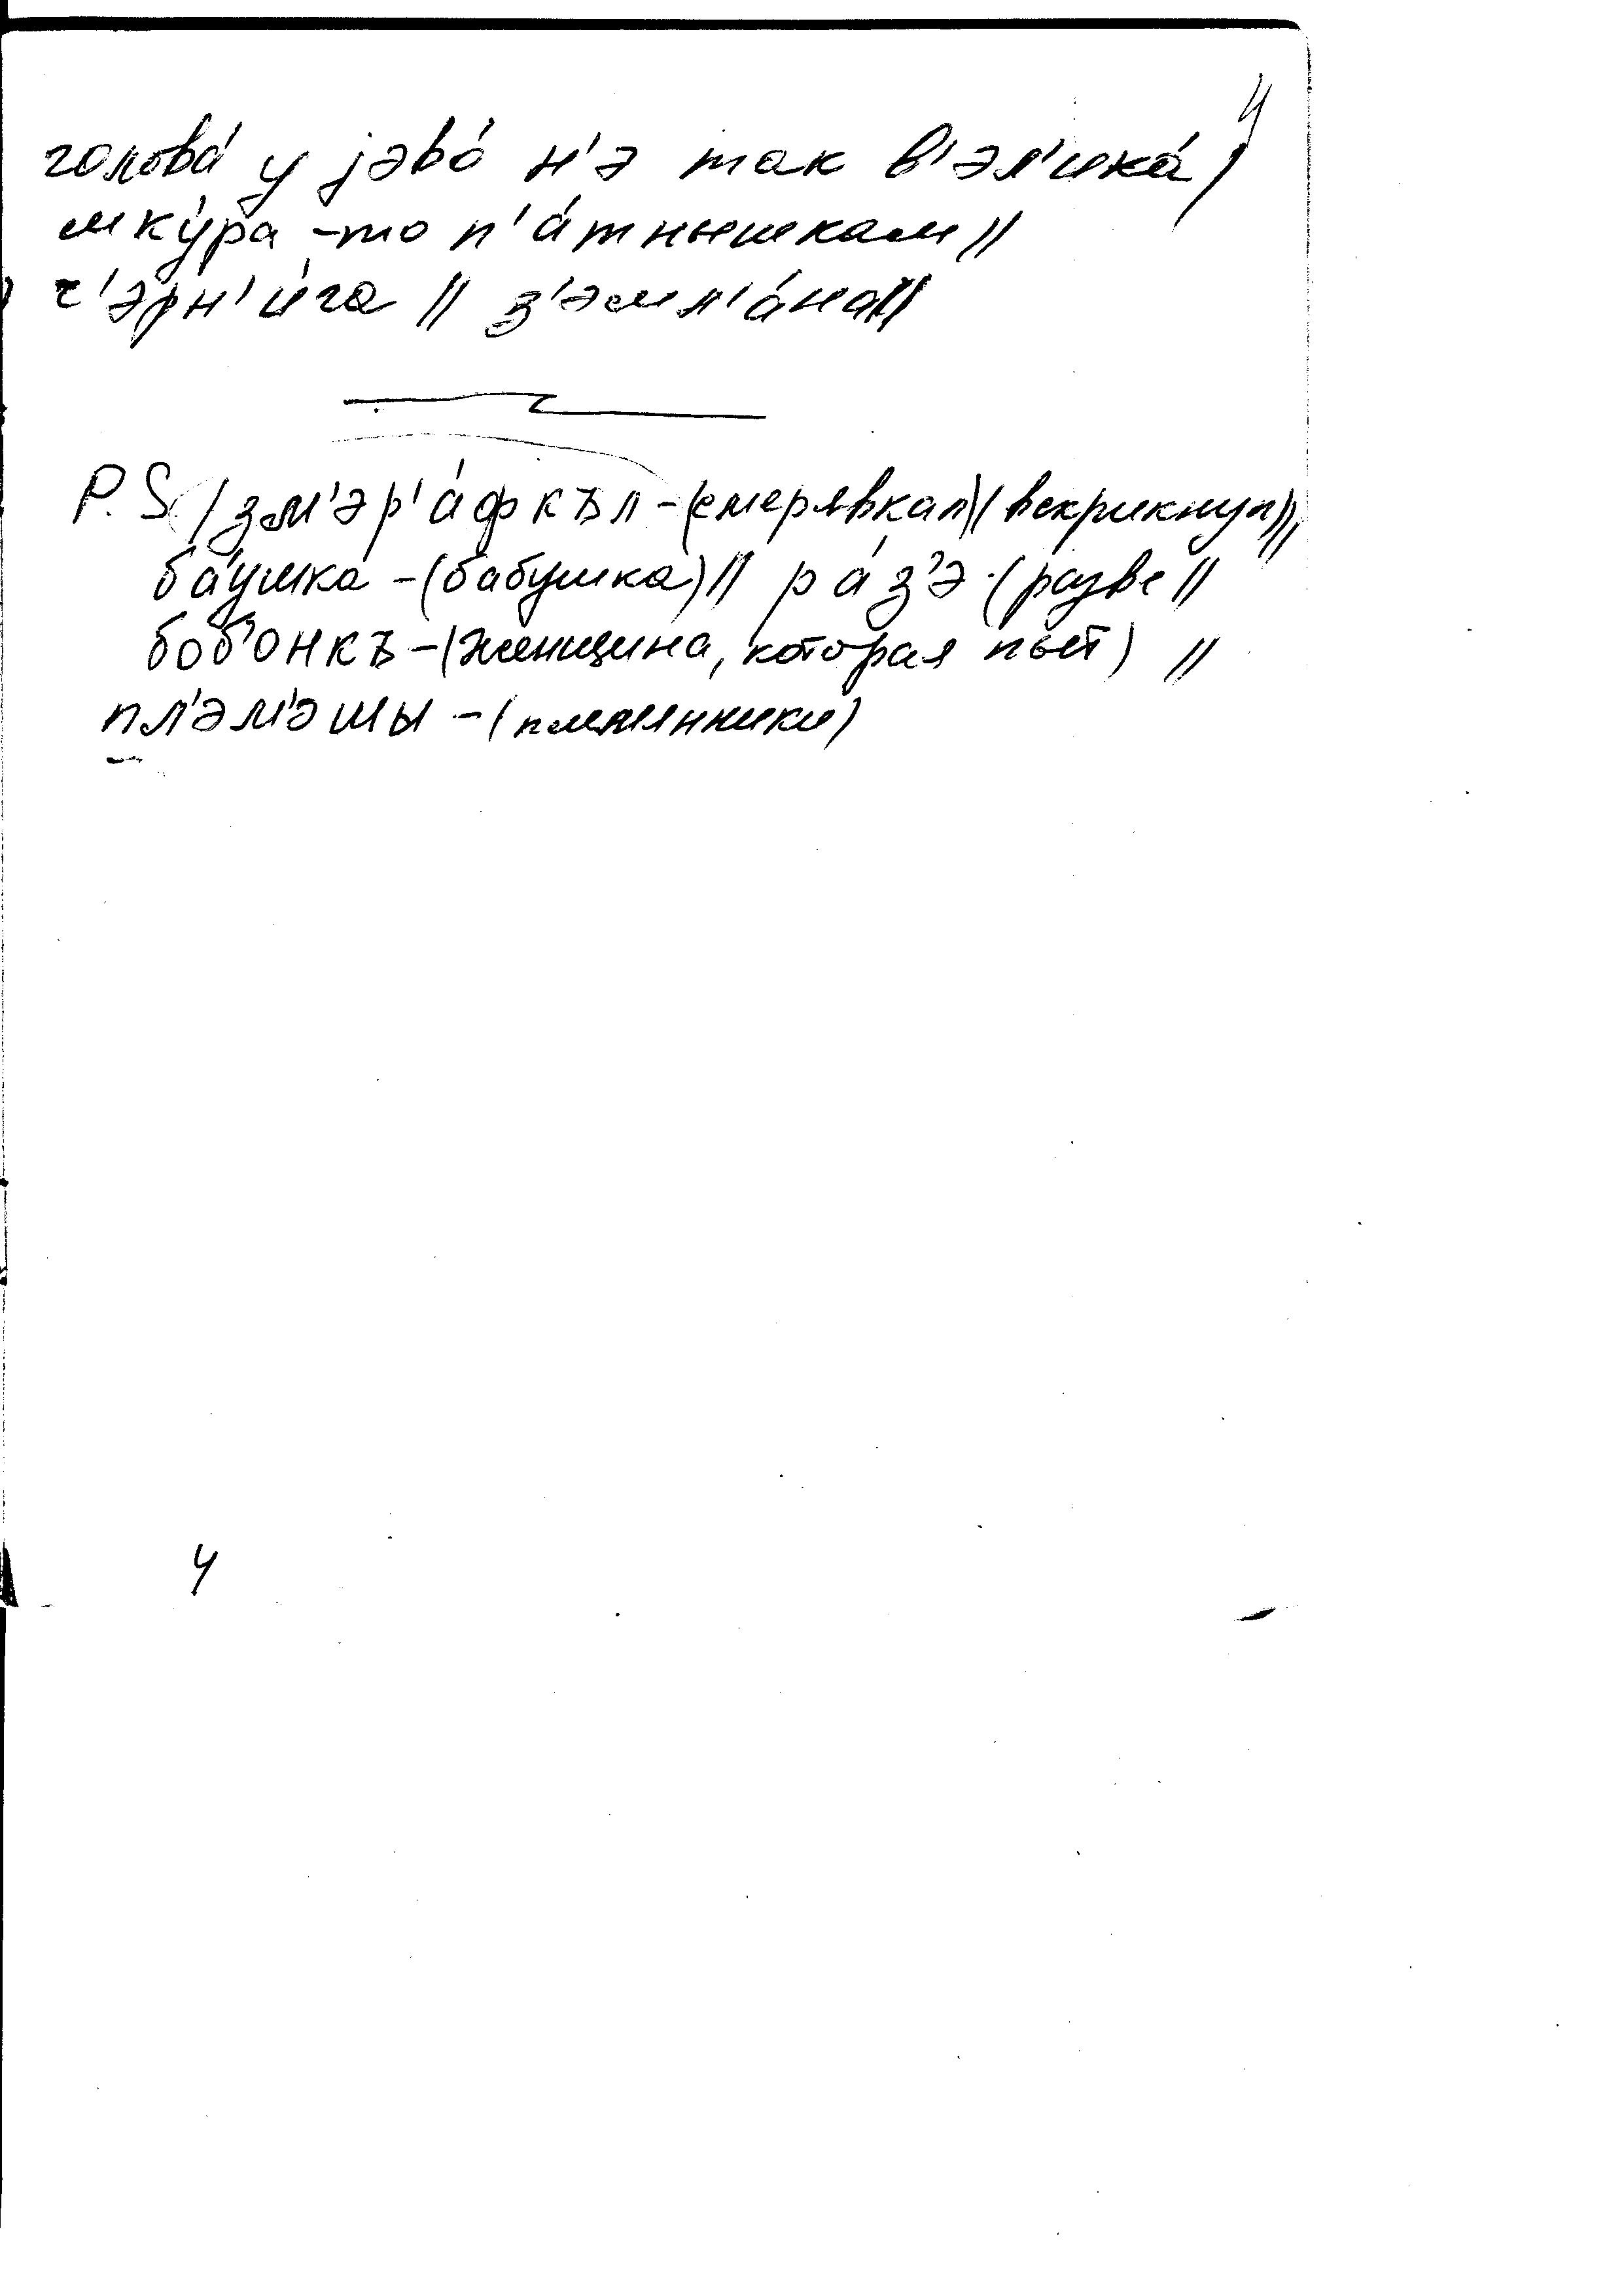 4
голова́ у jэво́ н'э так в'эл'ика́ /
шку́ра -то п'а́тнышкам //
ч'эрн'и́га // з'эмл'а́на //
P.S. / зм'эр'а́фкъл - (смерявкал) (вскрикнул) //,
ба́ушка - (бабушка) // ра́з'э - (разве //
боб'онкъ - (женщина, которая пьёт) //
пл'эм'эшы - (племянники)
4